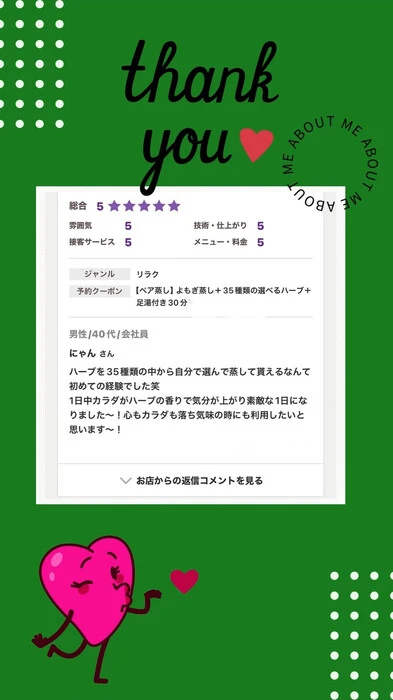 thank
you
ABOUT ME ABOUT ME ABOUT ME
総合 5
雰囲気 5 技術・仕上がり 5
接客サービス 5 メニュー・料金 5
ジャンル リラク
予約クーポン 【ペア蒸し】よもぎ蒸し+35種類の選べるハーブ+
足湯付き30分
男性/40代/会社員
にゃん さん
ハーブを35種類の中から自分で選んで蒸して貰えるなんて
初めての経験でした笑
1日中カラダがハーブの香りで気分が上がり素敵な1日にな
りました〜!心もカラダも落ち気味の時にも利用したいと
思います〜!
お店からの返信コメントを見る